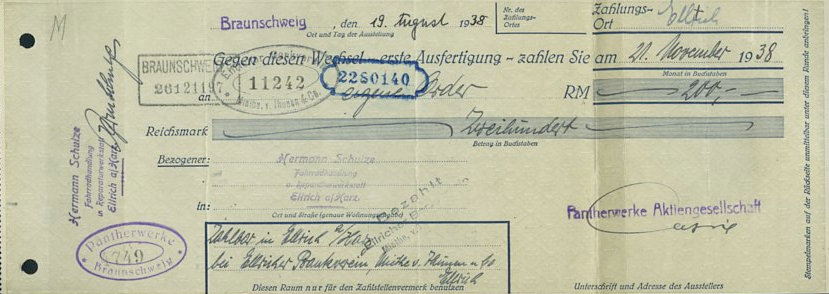 M
Braunschweig, den 19. August 1938
Ort und Tag der Ausstellung
Nr. des
Zahlungs-
Ortes
Zahlungs-
Ort Ellrich
Gegen diesen Wechsel - erste Ausfertigung - zahlen Sie am 21. November 1938
Monat in Buchstaben
BRAUNSCHWEIG
11242
2280140
an eigene Order RM 200,-
Reichsmark Zweihundert
Betrag in Buchstaben
Bezogener: Hermann Schulze
Fahrradhandlung
u. Reparaturwerkstatt
Ellrich a/Harz.
in:
Ort und Straße (genaue Wohnungsangabe)
Bezahlt
Zahlbar in Ellrich a/Harz
bei Ellricher Bankverein, Mithe v. Thunen & Co
Ellrich
Diesen Raum nur für den Zahlstellenvermerk benutzen
Pantherwerke Aktiengesellschaft
Unterschrift und Adresse des Ausstellers
Hermann Schulze
Fahrradhandlung
u. Reparaturwerkstatt
Ellrich a/Harz.
Pantherwerke
749
Braunschweig
Stempelmarken auf der Rückseite unmittelbar unter diesem Rande anbringen!